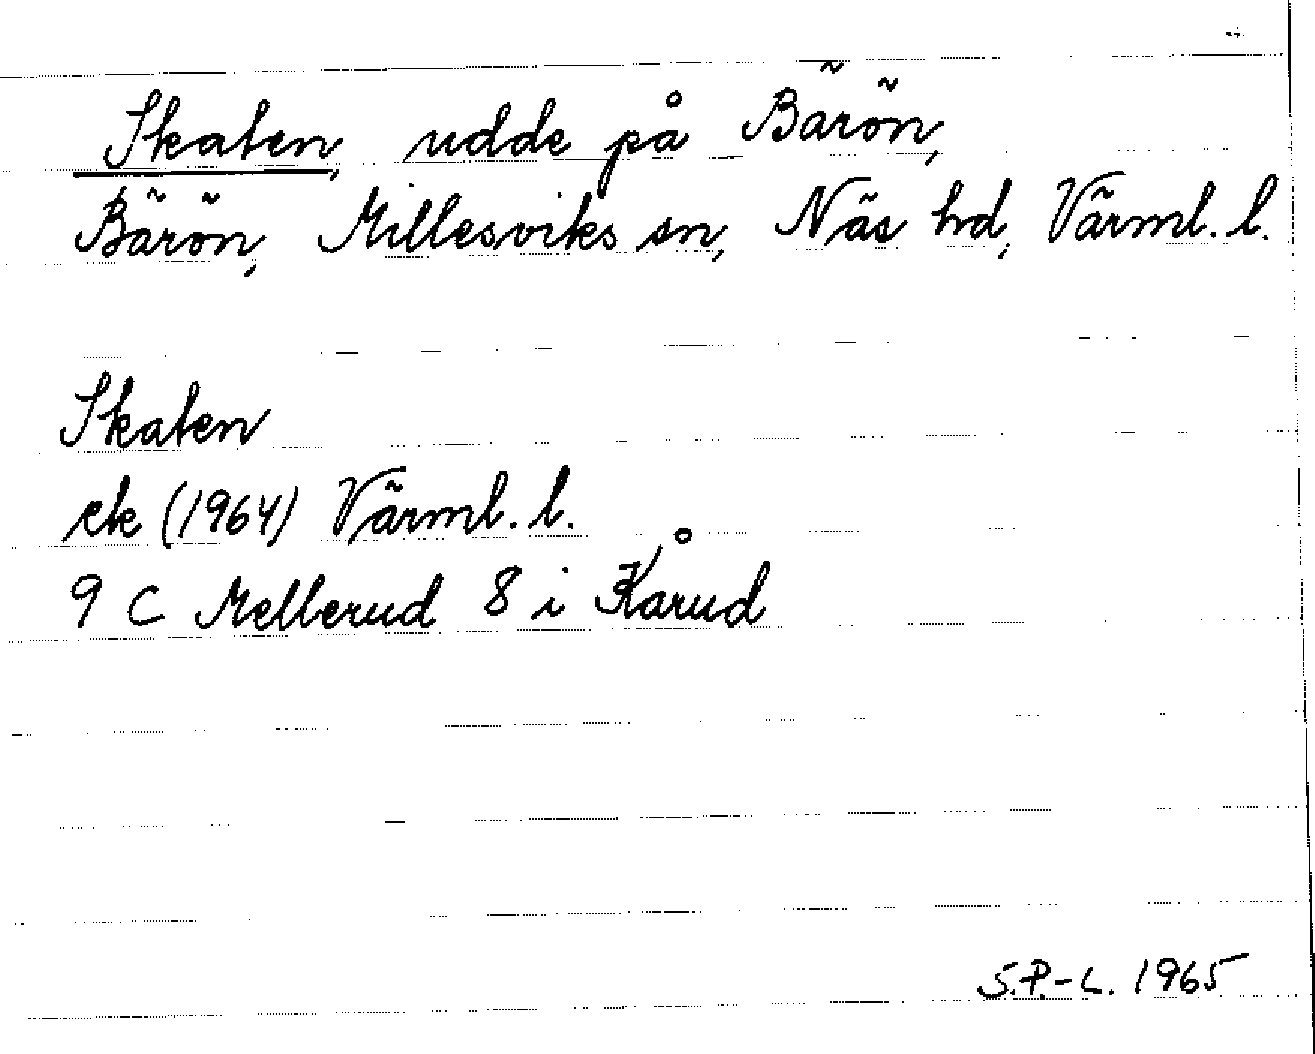 Skaten, udde på Bärön,
Bärön, Millesviks sn, Näs hd, Värml. l.
Skaten
ek (1964) Värml. l.
9 C Mellerud 8 i Kårud
S.P.-L. 1965